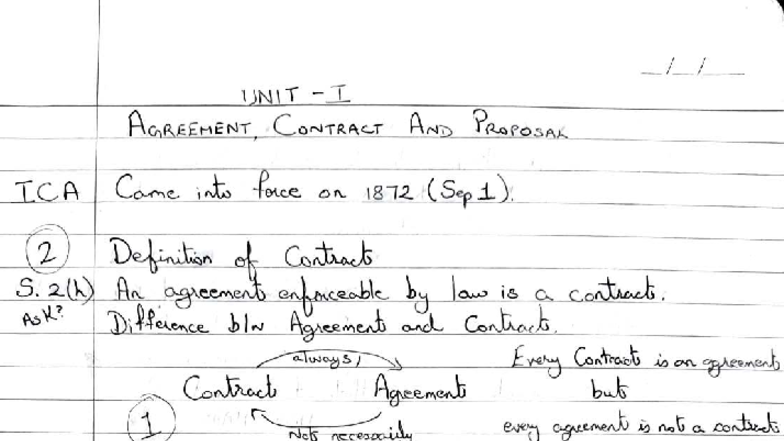 _/_/__
UNIT - I
AGREEMENT, CONTRACT AND PROPOSAL
ICA Came into force on 1872 (Sep 1).
2 Definition of Contract
S. 2(h) An agreement enforceable by law is a contract.
Ask? Difference b/w Agreement and Contract.
always, Every Contract is an agreement
Contract Agreement but
1 Not necessarily every agreement is not a contract